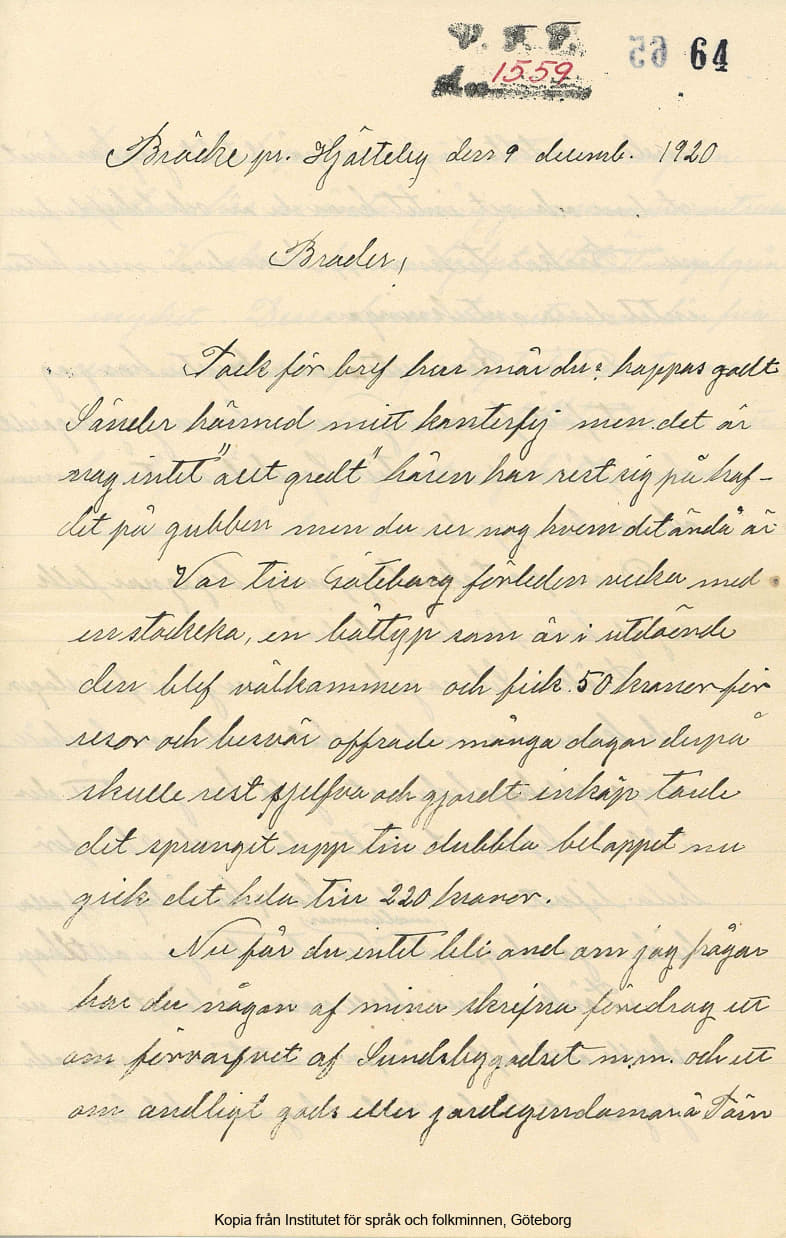 V. F. F.
1559
65 64
Bräcke pr. Hjälteby den 9 decemb. 1920
Broder,
Tack för bref hur mår du? hoppas godt
Sänder härmed mitt konterfej men det är
nog intet "altt gredt" håren har rest sig på huf-
det på gubben men du ser nog hvem det ändå är
Var till Göteborg förleden vecka med
en stockeka, en båttyp som är i utdöende
den blef välkommen och fick 50 kronor för
resor och besvär offrade många dagar derpå
skulle rest sjelfva och gjordt inköp torde
det sprunget upp till dubbla beloppet nu
gick det hela till 220 kronor.
Nu får du intet bli ond om jag frågar
har du någon af mina skrifna föredrag ett
om förvarfvet af Sundsbygodset m.m. och ett
om andligt gods eller jordegendomar å Törn
Kopia från Institutet för språk och folkminnen, Göteborg